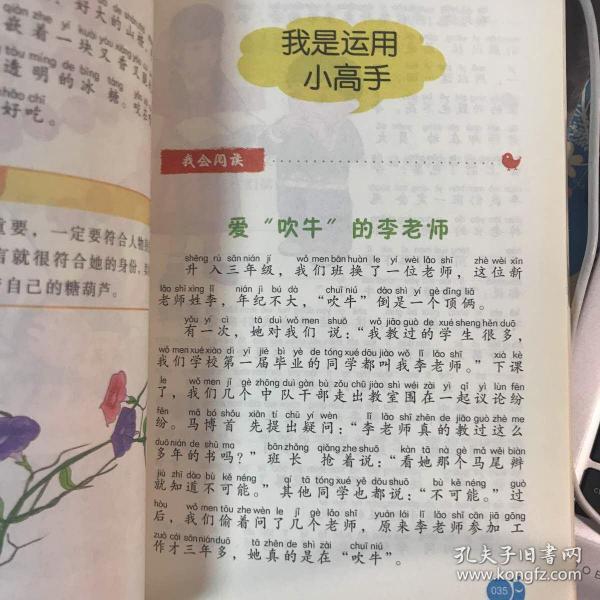 好大的山楂
嵌着一块又香又
透明的冰糖。咬
好吃。
重要，一定要符合人物
言就很符合她的身份，
自己的糖葫芦。
我是运用
小高手
我会阅读
爱“吹牛”的李老师
shēng rù sān nián jí wǒ men bān huàn le yí wèi lǎo shī zhè wèi xīn
升入三年级，我们班换了一位老师，这位新
lǎo shī xìng lǐ nián jì bú dà chuī niú dào shì yí gè dǐng liā
老师姓李，年纪不大，“吹牛”倒是一个顶俩。
yǒu yí cì tā duì wǒ men shuō wǒ jiāo guò de xué sheng hěn duō
有一次，她对我们说：“我教过的学生很多，
wǒ men xué xiào dì yī jiè bì yè de tóng xué dōu jiào wǒ lǐ lǎo shī xià kè
我们学校第一届毕业的同学都叫我李老师。”下课
le wǒ men jǐ gè zhōng duì gàn bù zǒu chū jiào shì wéi zài yì qǐ yì lùn fēn
了，我们几个中队干部走出教室围在一起议论纷
fēn mǎ bó shǒu xiān tí chū yí wèn lǐ lǎo shī zhēn de jiāo guò zhè me
纷。马博首先提出疑问：“李老师真的教过这么
duō nián de shū ma bān zhǎng qiǎng zhe shuō kàn tā nà gè mǎ wěi biàn
多年的书吗？”班长抢着说：“看她那个马尾辫
jiù zhī dào bù kě néng qí tā tóng xué yě dōu shuō bù kě néng guò
就知道不可能。”其他同学也都说：“不可能。”过
hòu wǒ men tōu zhe wèn le jǐ gè lǎo shī yuán lái lǐ lǎo shī cān jiā gōng
后，我们偷着问了几个老师，原来李老师参加工
zuò cái sān nián duō tā zhēn de shì zài chuī niú
作才三年多，她真的是在“吹牛”。
035
孔夫子旧书网